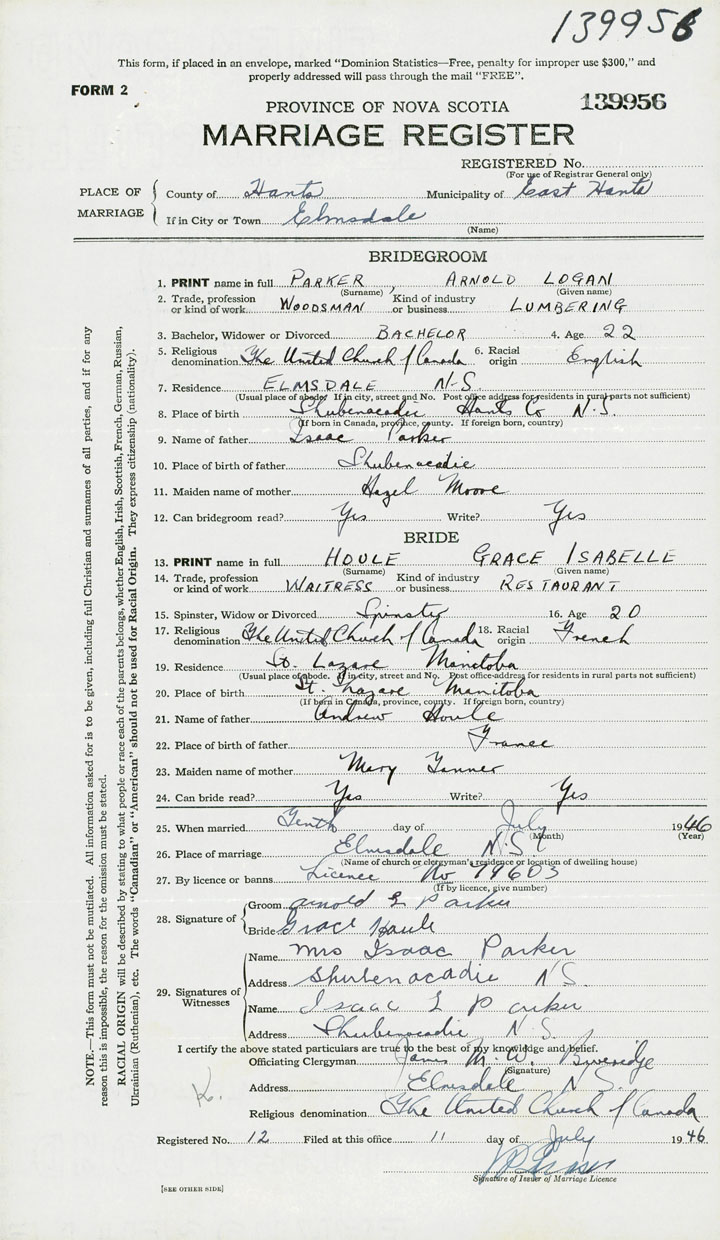 139956
This form, if placed in an envelope, marked "Dominion Statistics—Free, penalty for improper use $300," and
properly addressed will pass through the mail "FREE".
FORM 2
PROVINCE OF NOVA SCOTIA
139956
MARRIAGE REGISTER
REGISTERED No.
(For use of Registrar General only)
PLACE OF MARRIAGE
County of Hants Municipality of East Hants
If in City or Town Elmsdale
(Name)
BRIDEGROOM
1. PRINT name in full PARKER, ARNOLD LOGAN
(Surname) (Given name)
2. Trade, profession or kind of work WOODSMAN Kind of industry or business LUMBERING
3. Bachelor, Widower or Divorced BACHELOR 4. Age 22
5. Religious denomination The United Church of Canada 6. Racial origin English
7. Residence ELMSDALE N-S.
(Usual place of abode. If in city, street and No. Post office address for residents in rural parts not sufficient)
8. Place of birth Shubenacadie Hants Co N.S.
(If born in Canada, province, county. If foreign born, country)
9. Name of father Isaac Parker
10. Place of birth of father Shubenacadie
11. Maiden name of mother Hazel Moore
12. Can bridegroom read? Yes Write? Yes
BRIDE
13. PRINT name in full HOULE GRACE ISABELLE
(Surname) (Given name)
14. Trade, profession or kind of work WAITRESS Kind of industry or business RESTAURANT
15. Spinster, Widow or Divorced Spinster 16. Age 20
17. Religious denomination The United Church of Canada 18. Racial origin French
19. Residence St. Lazare Manitoba
(Usual place of abode. If in city, street and No. Post office-address for residents in rural parts not sufficient)
20. Place of birth St. Lazare Manitoba
(If born in Canada, province, county. If foreign born, country)
21. Name of father Andrew Houle
22. Place of birth of father France
23. Maiden name of mother Mary Tanner
24. Can bride read? Yes Write? Yes
25. When married Tenth day of July 1946
(Month) (Year)
26. Place of marriage Elmsdale N.S.
(Name of church or clergyman's residence or location of dwelling house)
27. By licence or banns Licence No 79603
(If by licence, give number)
28. Signature of
Groom Arnold L Parker
Bride Grace Houle
29. Signatures of Witnesses
Name Mrs Isaac Parker
Address Shubenacadie N.S.
Name Isaac L Parker
Address Shubenacadie N.S.
I certify the above stated particulars are true to the best of my knowledge and belief.
Officiating Clergyman James M. W. Beveridge
(Signature)
Address Elmsdale N.S.
Religious denomination The United Church of Canada
K.
Registered No. 12 Filed at this office 11 day of July 1946
Signature of Issuer of Marriage Licence
[SEE OTHER SIDE]
NOTE.—This form must not be mutilated. All information asked for is to be given, including full Christian and surnames of all parties, and if for any
reason this is impossible, the reason for the omission must be stated.
RACIAL ORIGIN will be described by stating to what people or race each of the parents belongs, whether English, Irish, Scottish, French, German, Russian,
Ukrainian (Ruthenian), etc. The words "Canadian" or "American" should not be used for Racial Origin. They express citizenship (nationality).